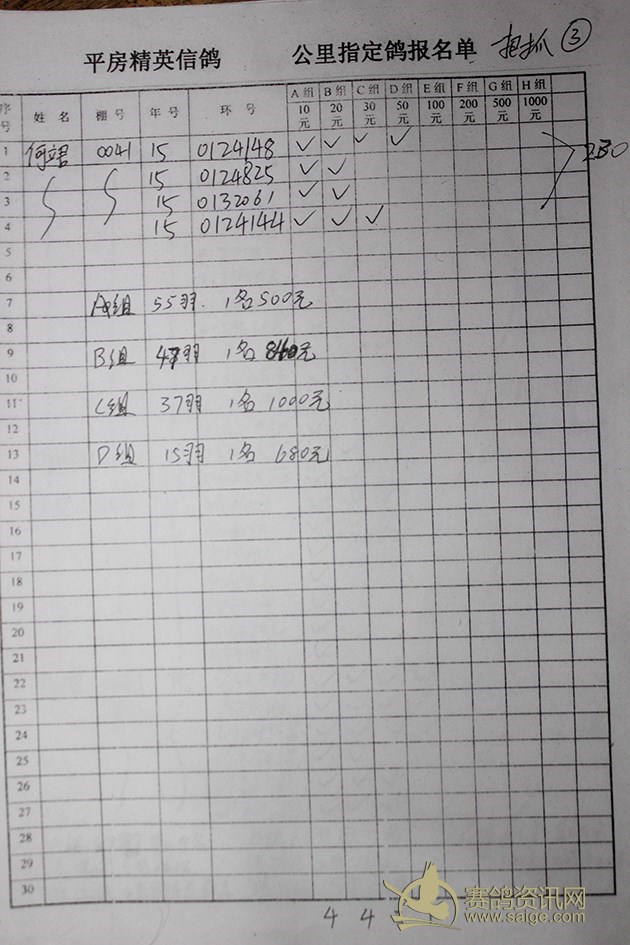 平房精英信鸽 公里指定鸽报名单 ③
序号 姓名 棚号 年号 环号 A组10元 B组20元 C组30元 D组50元 E组100元 F组200元 G组500元 H组1000元
1 何 0041 15 0124148 ✓ ✓ ✓ ✓
2 15 0124825 ✓ ✓
3 15 0132061 ✓ ✓
4 15 0124144 ✓ ✓ ✓
230
5
6
7 A组 55羽. 1名500元
8
9 B组 47羽 1名 元
10
11 C组 37羽 1名1000元
12
13 D组 15羽 1名 680元
14
15
16
17
18
19
20
21
22
23
24
25
26
27
28
29
30
4 4 1 1
赛鸽资讯网
www.saige.com